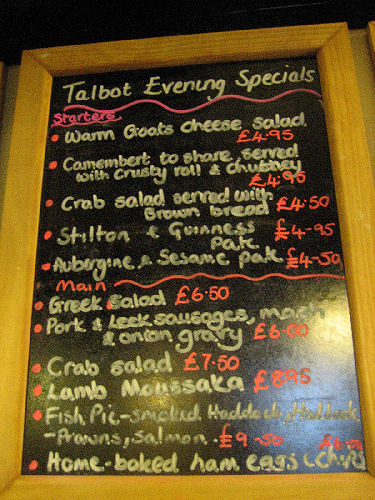 Talbot Evening Specials
Starters
Warm Goats cheese salad
£4.95
Camembert to share, served
with crusty roll & chutney
£4.95
Crab salad served with
Brown bread £4.50
Stilton & Guinness
Pate £4-95
Aubergine & Sesame pate £4-50
Main
Greek Salad £6.50
Pork & Leek sausages, mash
& onion gravy £6.00
Crab salad £7.50
Lamb Moussaka £8.95
Fish Pie-smoked Haddock,
-Prawns, Salmon. £9-50
Home-baked ham eggs & chips